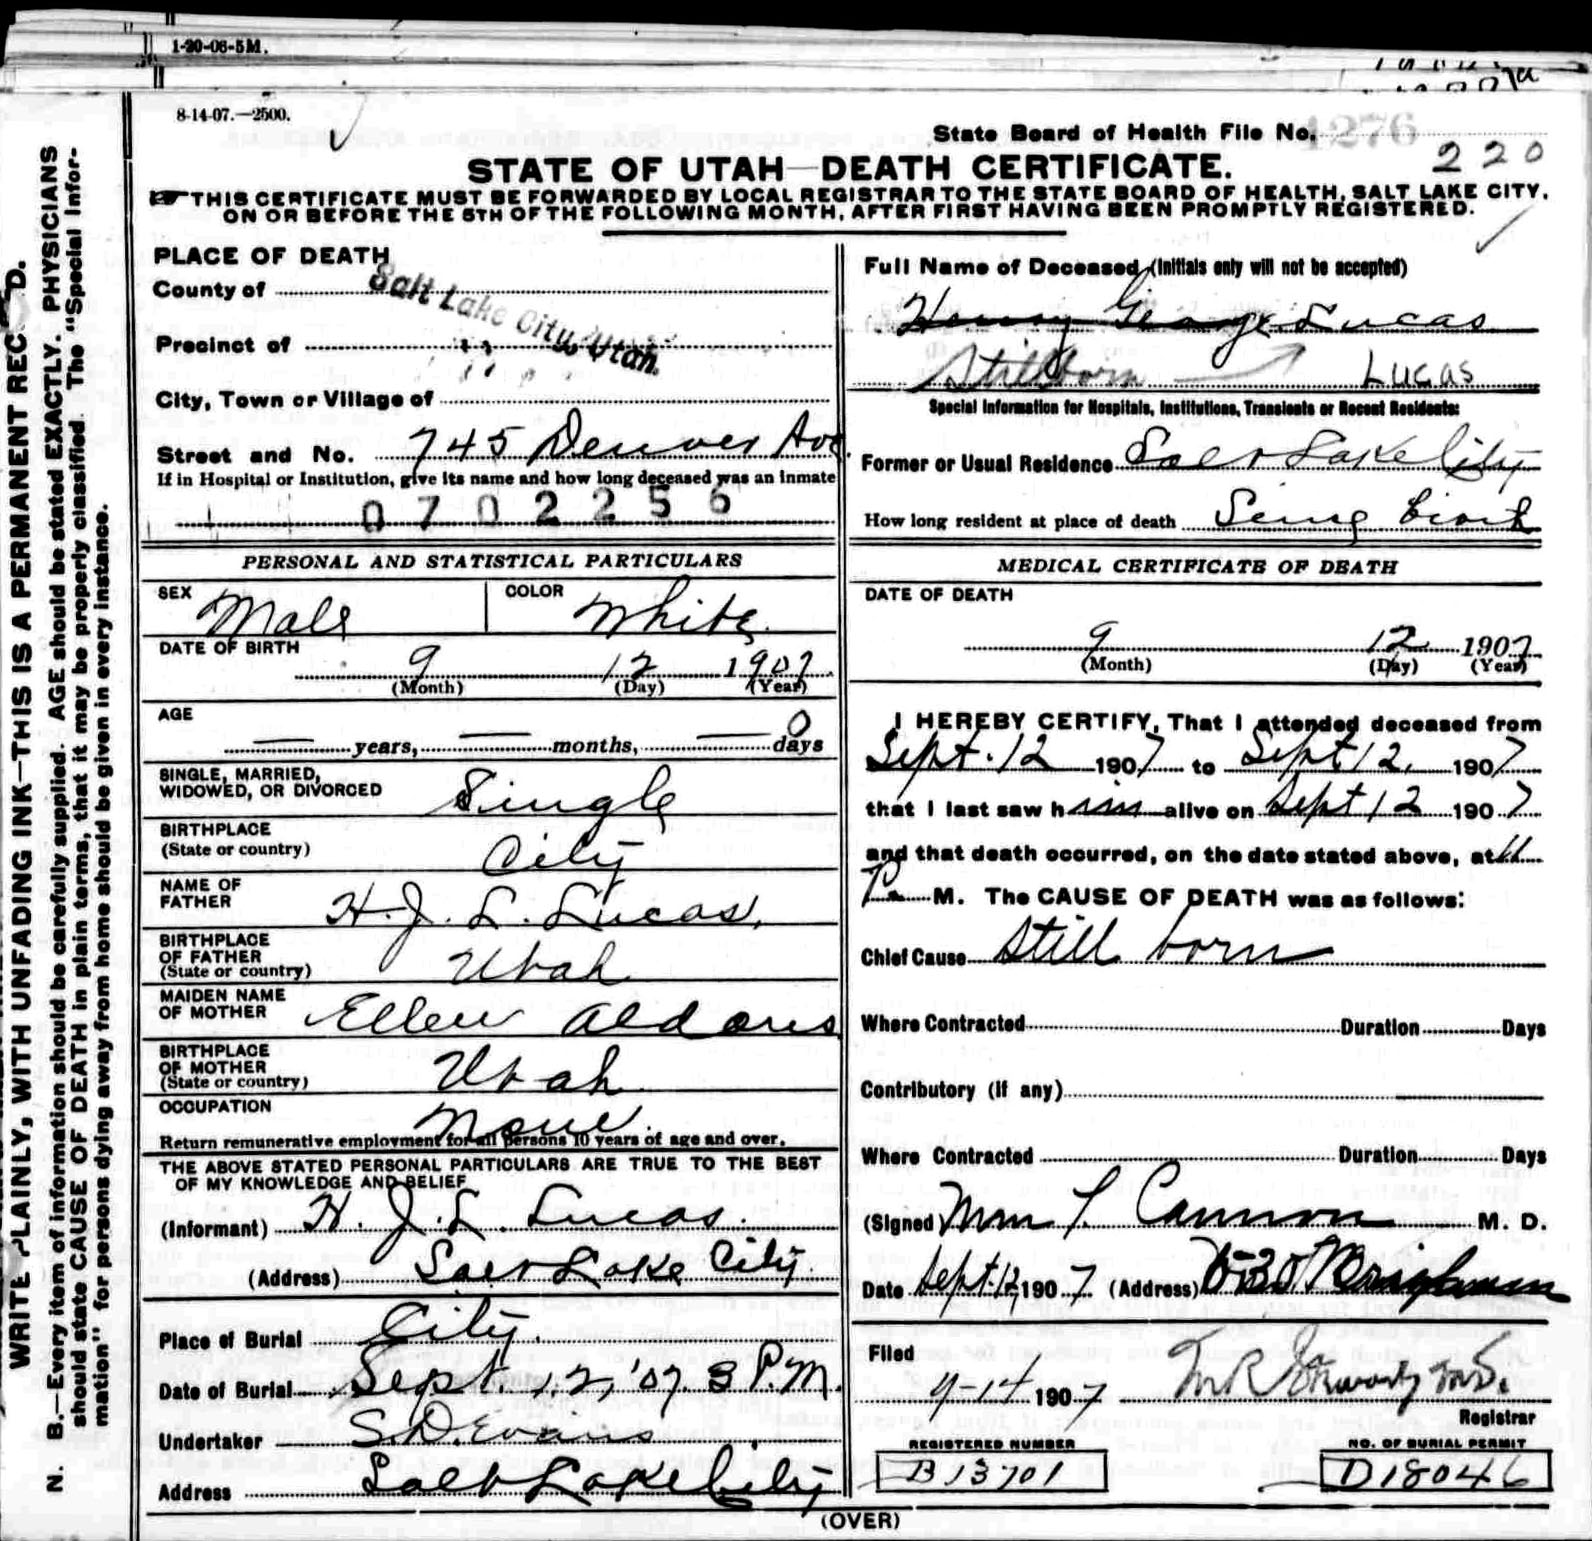 1-20-06-5M.
8-14-07.—2500.
State Board of Health File No. 1276
220
STATE OF UTAH—DEATH CERTIFICATE.
THIS CERTIFICATE MUST BE FORWARDED BY LOCAL REGISTRAR TO THE STATE BOARD OF HEALTH, SALT LAKE CITY,
ON OR BEFORE THE 5TH OF THE FOLLOWING MONTH, AFTER FIRST HAVING BEEN PROMPTLY REGISTERED.
WRITE PLAINLY, WITH UNFADING INK—THIS IS A PERMANENT RECORD.
N. B.—Every item of information should be carefully supplied. AGE should be stated EXACTLY. PHYSICIANS
should state CAUSE OF DEATH in plain terms, that it may be properly classified. The "Special Infor-
mation" for persons dying away from home should be given in every instance.
PLACE OF DEATH
County of
Salt Lake City, Utah.
Precinct of
City, Town or Village of
Street and No. 745 Denver Ave.
If in Hospital or Institution, give its name and how long deceased was an inmate
0702256
PERSONAL AND STATISTICAL PARTICULARS
SEX Male
COLOR White.
DATE OF BIRTH
9 12 1907
(Month) (Day) (Year)
AGE
— years, — months, — 0 days
SINGLE, MARRIED,
WIDOWED, OR DIVORCED Single
BIRTHPLACE
(State or country) City
NAME OF
FATHER H. J. L. Lucas,
BIRTHPLACE
OF FATHER
(State or country) Utah
MAIDEN NAME
OF MOTHER Ellen Aldous
BIRTHPLACE
OF MOTHER
(State or country) Utah
OCCUPATION None
Return remunerative employment for all persons 10 years of age and over.
THE ABOVE STATED PERSONAL PARTICULARS ARE TRUE TO THE BEST
OF MY KNOWLEDGE AND BELIEF
(Informant) H. J. L. Lucas.
(Address) Salt Lake City.
Place of Burial City.
Date of Burial Sept. 12, '07. 3 P.M.
Undertaker S. D. Evans
Address Salt Lake City
Full Name of Deceased (Initials only will not be accepted)
Henry George Lucas
Stillborn Lucas
Special Information for Hospitals, Institutions, Transients or Recent Residents:
Former or Usual Residence Salt Lake City
How long resident at place of death Sence birth
MEDICAL CERTIFICATE OF DEATH
DATE OF DEATH
9 12 1907
(Month) (Day) (Year)
I HEREBY CERTIFY, That I attended deceased from
Sept. 12 1907 to Sept 12, 1907
that I last saw him alive on Sept 12 1907
and that death occurred, on the date stated above, at 11
P. M. The CAUSE OF DEATH was as follows:
Chief Cause Still born
Where Contracted Duration Days
Contributory (if any)
Where Contracted Duration Days
(Signed Wm T. Cannon M. D.
Date Sept. 12 1907 (Address)
Filed
9-14 1907
Registrar
REGISTERED NUMBER
B13701
NO. OF BURIAL PERMIT
D18046
(OVER)